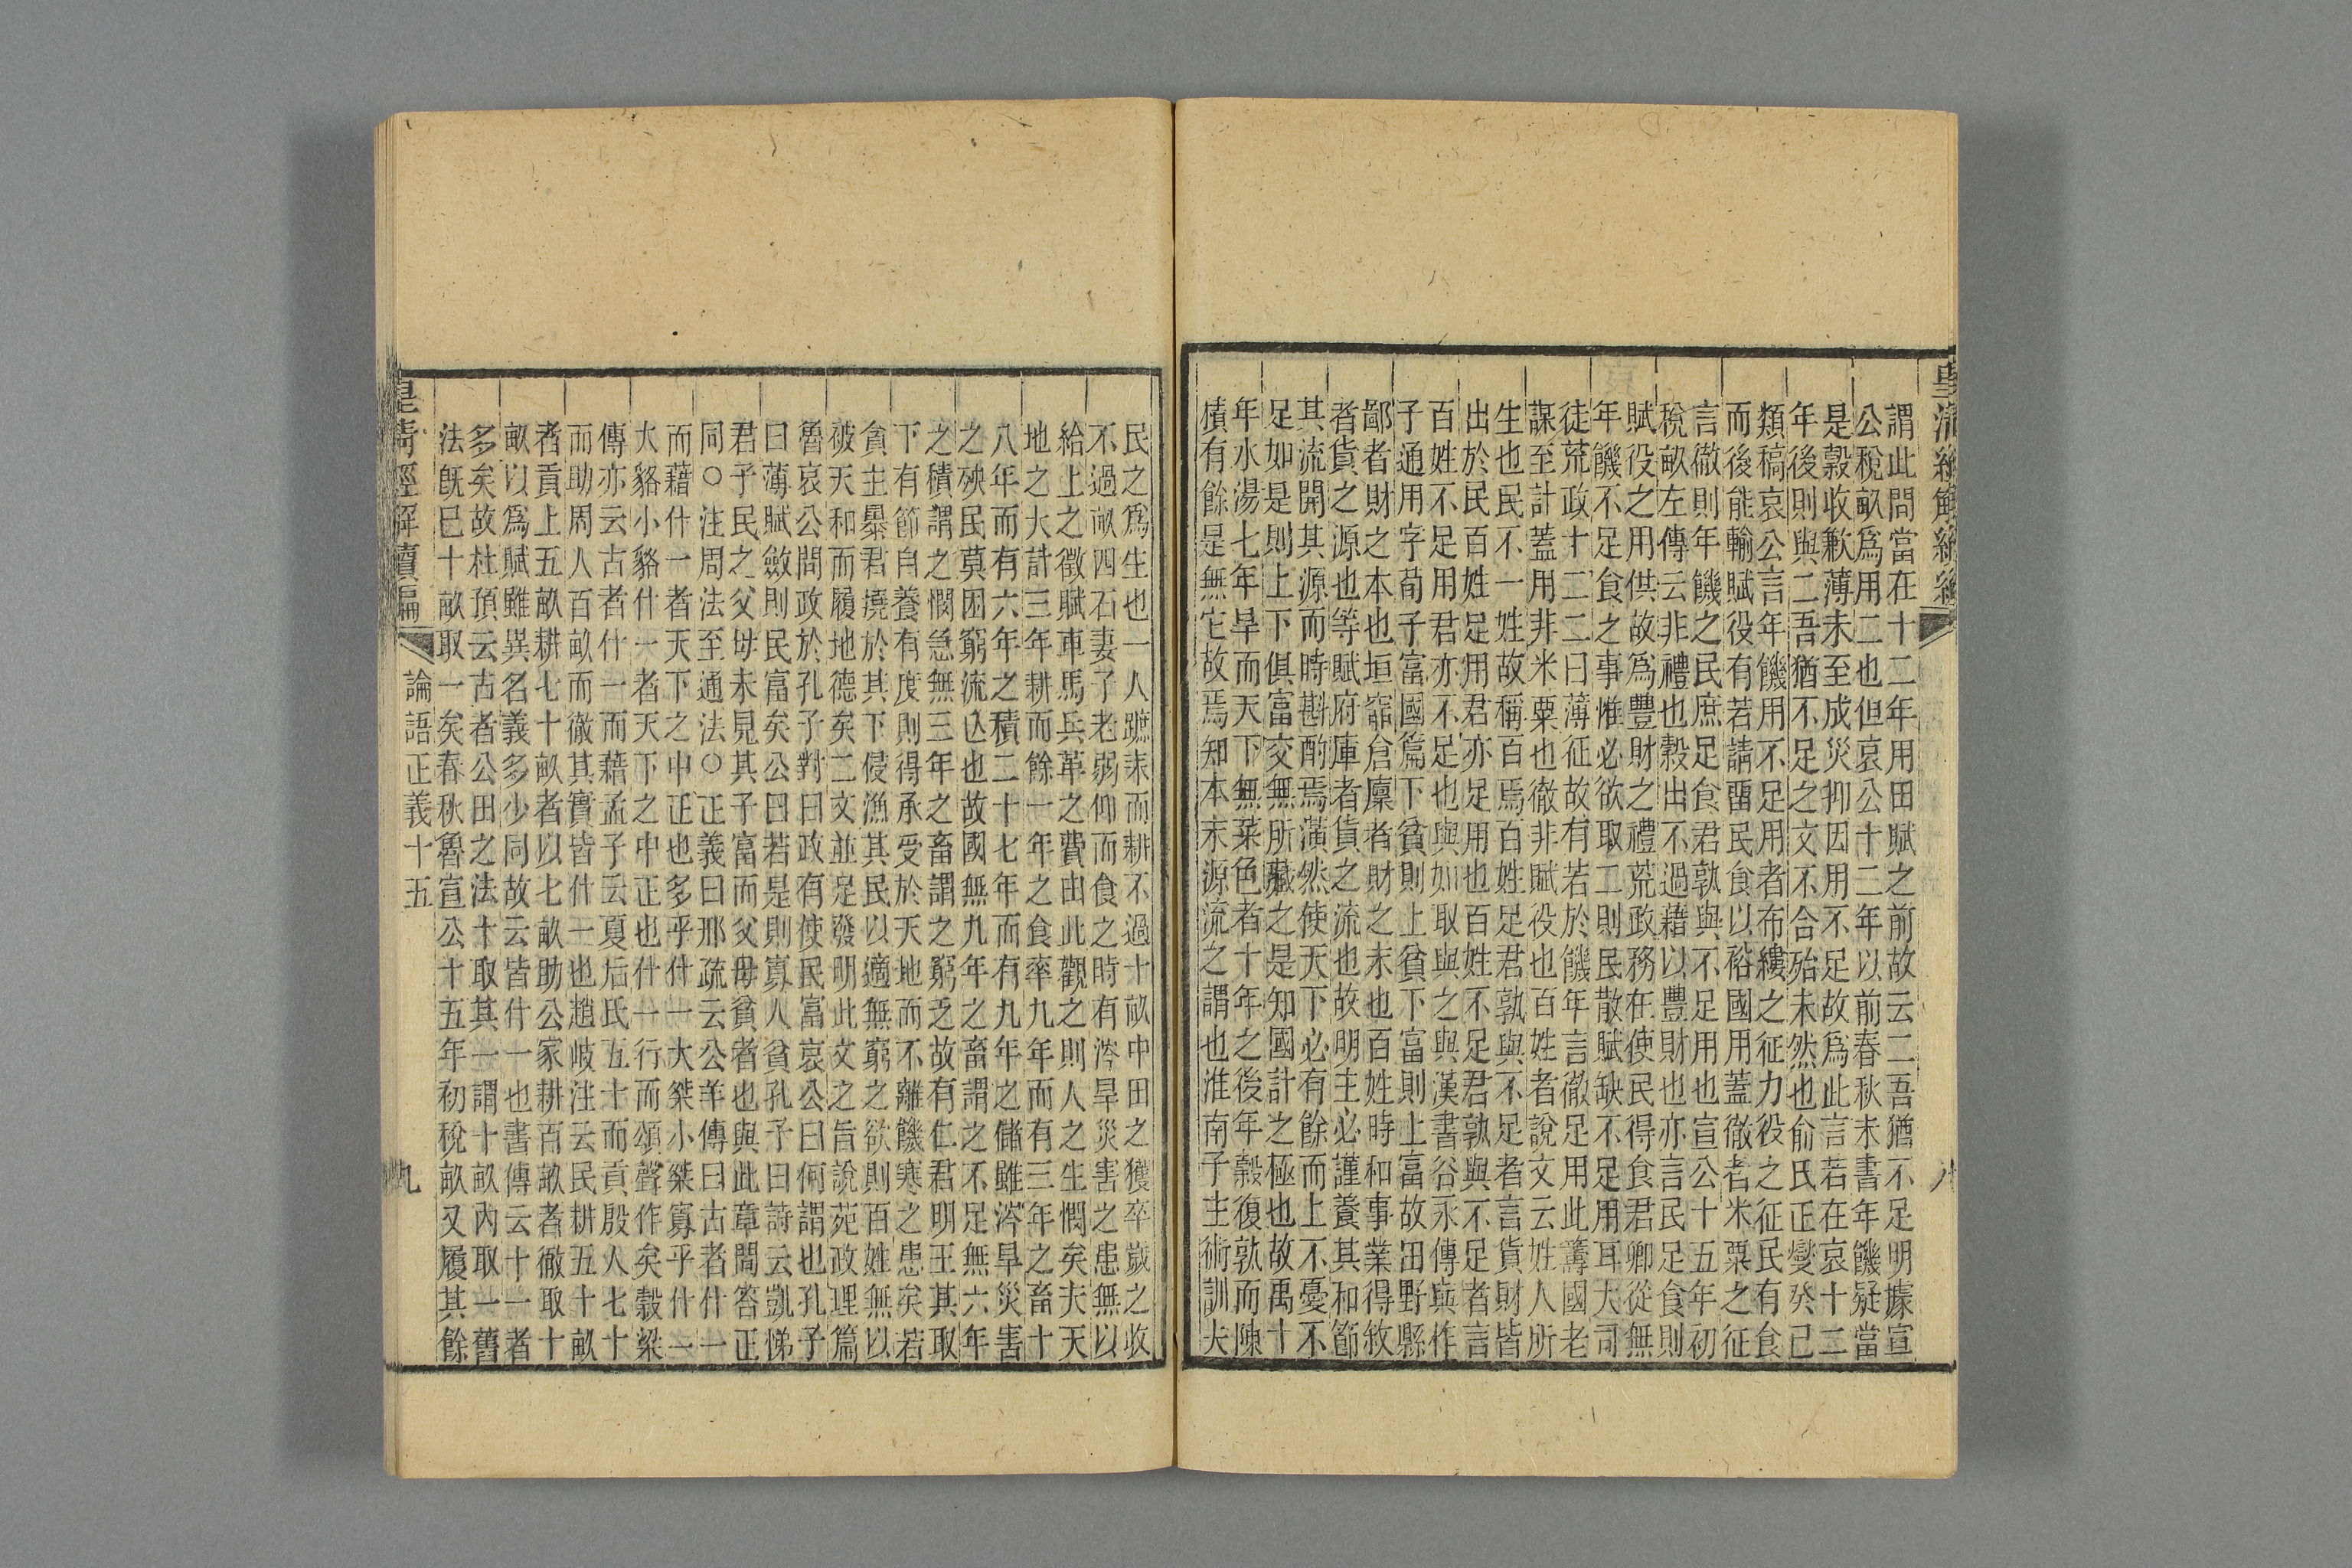 謂此問當在十二年用田賦之前故云二吾猶不足明據宣
公稅畝爲用二也但哀公十二年以前春秋未書年饑疑當
是穀收歉薄未至成災抑因用不足故爲此言若在哀十二
年後則與二吾猶不足之文不合殆未然也俞氏正燮癸已
類稿哀公言年饑用不足用者布縷之征力役之征民有食
而後能輸賦役有若請畱民食以裕國用蓋徹者米粟之征
言徹則年饑之民庶足食君孰與不足用也宣公十五年初
稅畝左傳云非禮也穀出不過藉以豐財也亦言民足食則
賦役之用供故爲豐財之禮荒政務在使民得食君卿從無
年饑不足食之事惟必欲取二則民散賦缺不足用耳大司
徒荒政十二二曰薄征故有若於饑年言徹足用此籌國老
謀至計蓋用非米粟也徹非賦役也百姓者說文云姓人所
生也民不一姓故稱百焉百姓足君孰與不足者言貨財皆
出於民百姓足用君亦足用也百姓不足君孰與不足者言
百姓不足用君亦不足也與如取與之與漢書谷永傳與作
子通用字荀子富國篇下貧則上貧下富則上富故田野縣
鄙者財之本也垣窌倉廩者財之末也百姓時和事業得敘
者貨之源也等賦府庫者貨之流也故明主必謹養其和節
其流開其源而時斟酌焉潢然使天下必有餘而上不憂不
足如是則上下俱富交無所藏之是知國計之極也故禹十
年水湯七年旱而天下無菜色者十年之後年穀復孰而陳
積有餘是無它故焉知本末源流之謂也淮南子主術訓夫
民之爲生也一人蹠耒而耕不過十畝中田之獲卒歲之收
不過畝四石妻子老弱仰而食之時有涔旱災害之患無以
給上之徵賦車馬兵革之費由此觀之則人之生憫矣夫天
地之大計三年耕而餘一年之食率九年而有三年之畜十
八年而有六年之積二十七年而有九年之儲雖涔旱災害
之殃民莫困窮流亾也故國無九年之畜謂之不足無六年
之積謂之憫急無三年之畜謂之窮乏故有仁君明王其取
下有節自養有度則得承受於天地而不離饑寒之患矣若
貪主暴君撓於其下侵漁其民以適無窮之欲則百姓無以
被天和而履地德矣二文並足發明此文之旨說苑政理篇
魯哀公問政於孔子對曰政有使民富哀公曰何謂也孔子
曰薄賦斂則民富矣公曰若是則寡人貧孔子曰詩云凱悌
君子民之父母未見其子富而父母貧者也與此章問答正
同〇注周法至通法〇正義曰邢疏云公羊傳曰古者什一
而藉什一者天下之中正也多乎什一大桀小桀寡乎什一
大貉小貉什一者天下之中正也什一行而頌聲作矣穀梁
傳亦云古者什一而藉孟子云夏后氏五十而貢殷人七十
而助周人百畝而徹其實皆什一也趙岐注云民耕五十畝
者貢上五畝耕七十畝者以七畝助公家耕百畝者徹取十
畝以爲賦雖異名義多少同故云皆什一也書傳云十一者
多矣故杜預云古者公田之法十取其一謂十畝內取一舊
法旣已十畝取一矣春秋魯宣公十五年初稅畝又履其餘
皇清經解續編
論語正義十五
九